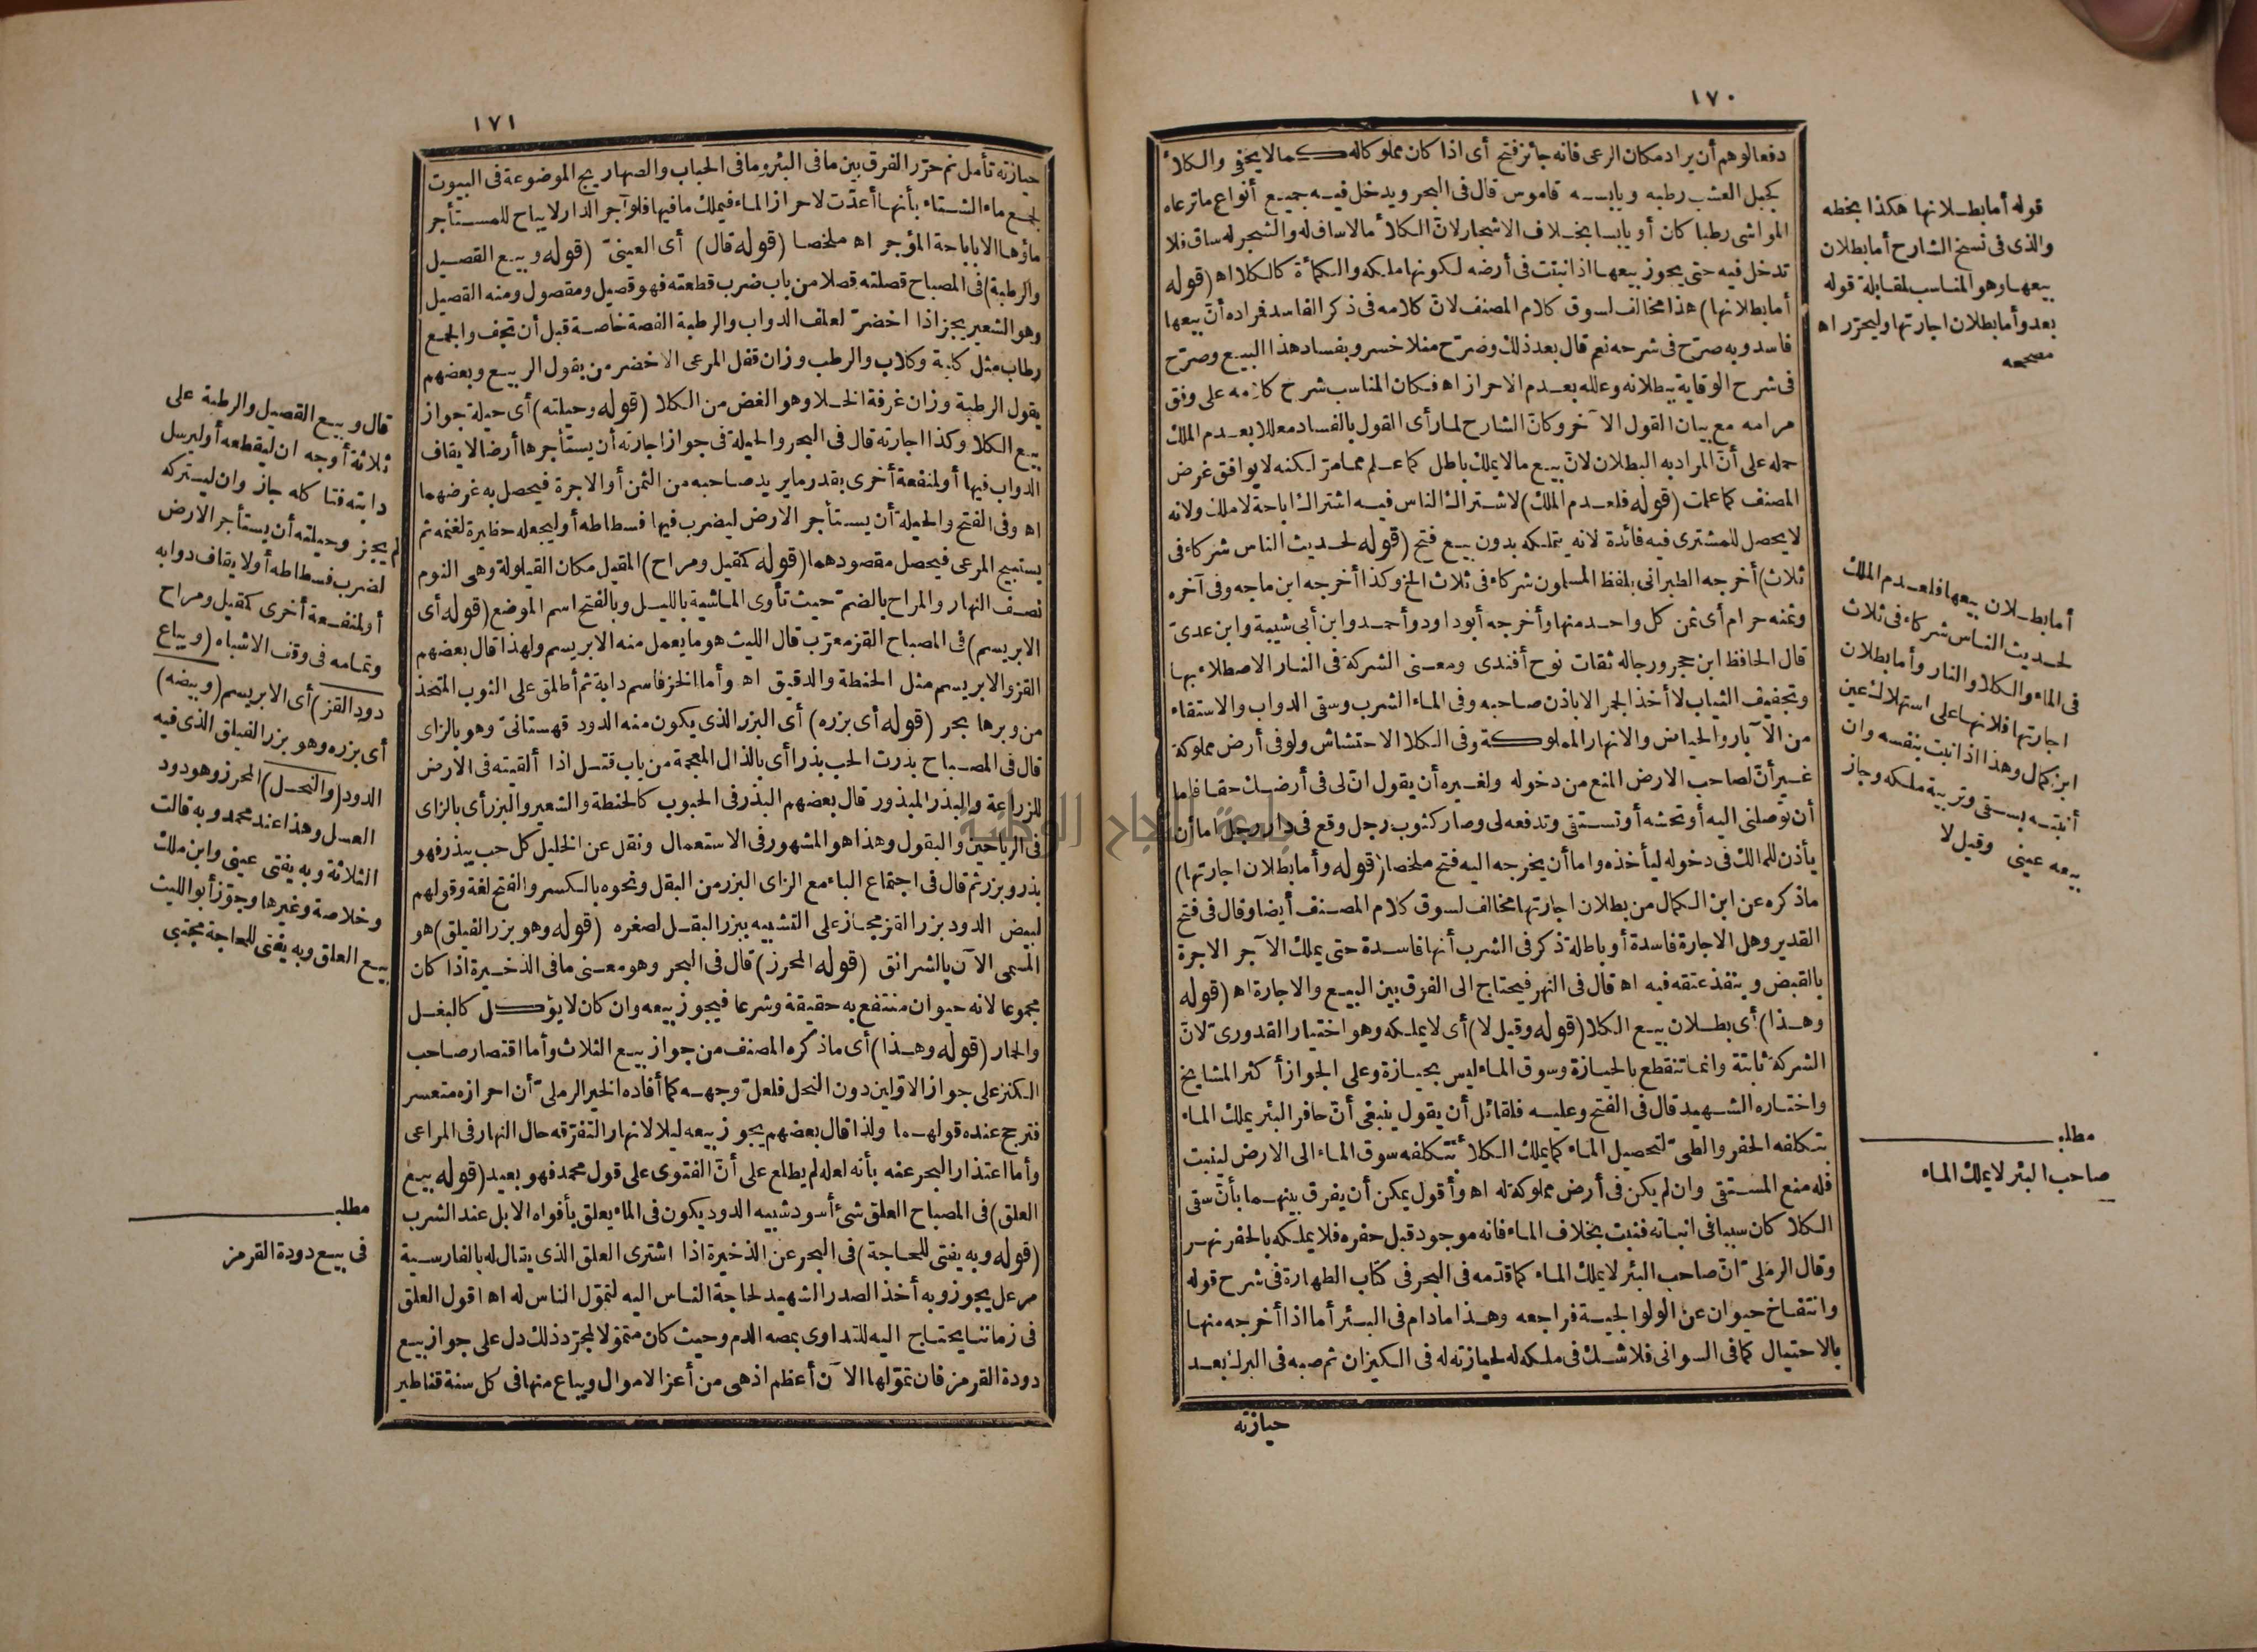 ١٧٠
دفعا لوهم أن يراد مكان الرعى فانه جائز فتح أى اذا كان مملوكاله كما لا يخفى والكلأ
كجبل العشب رطبه ويابسه قاموس قال فى البحر ويدخل فيه جميع أنواع ماترعاه
المواشى رطبا كان أو يابسا بخلاف الاشجار لانّ الكلأ مالاساق له والشجر له ساق فلا
تدخل فيه حتى يجوز بيعها اذا نبتت فى أرضه لكونها ملكه والكمأة كالكلا اه (قوله
أما بطلانها) هذا مخالف لسوق كلام المصنف لانّ كلامه فى ذكر الفاسد فراده أنّ بيعها
فاسد وبه صرّح فى شرحه نعم قال بعد ذلك وصرّح منلا خسرو بفساد هذا البيع وصرّح
فى شرح الوقاية ببطلانه وعلله بعدم الاحراز اه فكان المناسب شرح كلامه على وفق
مرامه مع بيان القول الآخر وكانّ الشارح لما رأى القول بالفساد معللا بعدم الملك
حمله على أنّ المراد به البطلان لانّ بيع مالايملك باطل كما علم مما مرّ لكنه لا يوافق غرض
المصنف كما علمت (قوله فلعدم الملك) لاشتراك الناس فيه اشتراك اباحة لا ملك ولانه
لا يحصل للمشترى فيه فائدة لانه يتملكه بدون بيع فتح (قوله لحديث الناس شركاء فى
ثلاث) أخرجه الطبرانى بلفظ المسلمون شركاء فى ثلاث الخ وكذا أخرجه ابن ماجه وفى آخره
وثمنه حرام أى ثمن كل واحد منها وأخرجه أبو داود وأحمد وابن أبى شيبة وابن عدىّ
قال الحافظ ابن حجر ورجاله ثقات نوح أفندى ومعنى الشركة فى النار الاصطلاء بها
وتجفيف الثياب لا أخذ الجمر الا باذن صاحبه وفى الماء الشرب وسقى الدواب والاستقاء
من الآبار والحياض والانهار المملوكة وفى الكلا الاحتشاش ولو فى أرض مملوكة
غير أنّ لصاحب الارض المنع من دخوله ولغيره أن يقول انّ لى فى أرضك حقا فاما
أن توصلنى اليه أو تحشه أو تستقى وتدفعه لى وصار كثوب رجل وقع فى دار رجل اما أن
يأذن للمالك فى دخوله ليأخذه واما أن يخرجه اليه فتح ملخصا (قوله وأما بطلان اجارتها)
ماذكره عن ابن الكمال من بطلان اجارتها مخالف لسوق كلام المصنف أيضا وقال فى فتح
القدير وهل الاجارة فاسدة أو باطلة ذكر فى الشرب أنها فاسدة حتى يملك الآجر الاجرة
بالقبض وينفذ عتقه فيه اه قال فى النهر فيحتاج الى الفرق بين البيع والاجارة اه (قوله
وهذا) أى بطلان بيع الكلا (قوله وقيل لا) أى لا يملكه وهو اختيار القدورىّ لانّ
الشركة ثابتة وانما تنقطع بالحيازة وسوق الماء ليس بحيازة وعلى الجواز أكثر المشايخ
واختاره الشهيد قال فى الفتح وعليه فلقائل أن يقول ينبغى أنّ حافر البئر يملك الماء
بتكلفه الحفر والطىّ لتحصيل الماء كما يملك الكلأ بتكلفه سوق الماء الى الارض لينبت
فله منع المستقى وان لم يكن فى أرض مملوكة له اه وأقول يمكن أن يفرق بينهما بأنّ سقى
الكلا كان سببا فى انباته فنبت بخلاف الماء فانه موجود قبل حفره فلا يملكه بالحفر نهر
وقال الرملى انّ صاحب البئر لا يملك الماء كما قدّمه فى البحر فى كتاب الطهارة فى شرح قوله
وانتفاخ حيوان عن الولوالجية فراجعه وهذا مادام فى البئر أما اذا أخرجه منها
بالاحتيال كما فى السوانى فلا شك فى ملكه له لحيازته له فى الكيزان ثم صبه فى البرك بعد
حيازته
قوله أما بطلانها هكذا بخطه
والذى فى نسخ الشارح أما بطلان
بيعها وهو المناسب لمقابلة قوله
بعد وأما بطلان اجارتها وليحرّر اه
مصححه
أما بطلان بيعها فلعدم الملك
لحديث الناس شركاء فى ثلاث
فى الماء والكلا والنار وأما بطلان
اجارتها فلانها على استهلاك عين
ابن كمال وهذا اذا نبت بنفسه وان
أنبته بسقى وتربية ملكه وجاز
بيعه عينى وقيل لا
مطلب
صاحب البئر لا يملك الماء
١٧١
حيازته تأمل ثم حرّر الفرق بين ما فى البئر وما فى الحباب والصهاريج الموضوعة فى البيوت
لجمع ماء الشتاء بأنها أعدّت لاحراز الماء فيملك ما فيها فلو آجر الدار لا يباح للمستأجر
ماؤها الا باباحة المؤجر اه ملخصا (قوله قال) أى العينىّ (قوله وبيع القصيل
والرطبة) فى المصباح قصلته قصلا من باب ضرب قطعته فهو قصيل ومقصول ومنه القصيل
وهو الشعير يجز اذا اخضرّ لعلف الدواب والرطبة الفصة خاصة قبل أن تجف والجمع
رطاب مثل كلبة وكلاب والرطب وزان قفل المرعى الاخضر من بقول الربيع وبعضهم
يقول الرطبة وزان غرفة الخلا وهو الغض من الكلا (قوله وحيلته) أى حيلة جواز
بيع الكلا وكذا اجارته قال فى البحر والحيلة فى جواز اجارته أن يستأجرها أرضا لايقاف
الدواب فيها أو لمنفعة أخرى بقدر ما يريد صاحبه من الثمن أو الاجرة فيحصل به غرضهما
اه وفى الفتح والحيلة أن يستأجر الارض ليضرب فيها فسطاطه أو ليجعله حظيرة لغنمه ثم
يستبيح المرعى فيحصل مقصودهما (قوله كمقيل ومراح) المقيل مكان القيلولة وهى النوم
نصف النهار والمراح بالضمّ حيث تأوى الماشية بالليل وبالفتح اسم الموضع (قوله أى
الابريسم) فى المصباح القز معرّب قال الليث هو ما يعمل منه الابريسم ولهذا قال بعضهم
القز والابريسم مثل الحنطة والدقيق اه وأما الخز فاسم دابة ثم أطلق على الثوب المتخذ
من وبرها بحر (قوله أى بزره) أى البزر الذى يكون منه الدود قهستانىّ وهو بالزاى
قال فى المصباح بذرت الحب بذرا أى بالذال المعجمة من باب قتل اذا ألقيته فى الارض
للزراعة والبذر المبذور قال بعضهم البذر فى الحبوب كالحنطة والشعير والبزر أى بالزاى
فى الرياحين والبقول وهذا هو المشهور فى الاستعمال ونقل عن الخليل كل حب يبذر فهو
بذر وبزر ثم قال فى اجتماع الباء مع الزاى البزر من البقل ونحوه بالكسر والفتح لغة وقولهم
لبيض الدود بزر القز مجاز على التشبيه ببزر البقل لصغره (قوله وهو بزر الفيلق) هو
المسمى الآن بالشرانق (قوله المحرز) قال فى البحر وهو معنى ما فى الذخيرة اذا كان
مجموعا لانه حيوان منتفع به حقيقة وشرعا فيجوز بيعه وان كان لا يؤكل كالبغل
والحمار (قوله وهذا) أى ماذكره المصنف من جواز بيع الثلاث وأما اقتصار صاحب
الكنز على جواز الاوّلين دون النحل فلعلّ وجهه كما أفاده الخير الرملىّ أن احرازه متعسر
فترجح عنده قولهما ولذا قال بعضهم يجوز بيعه ليلا لا نهار التفرّقه حال النهار فى المراعى
وأما اعتذار البحر عنه بأنه لعله لم يطلع على أنّ الفتوى على قول محمد فهو بعيد (قوله بيع
العلق) فى المصباح العلق شئ أسود شبيه الدود يكون فى الماء يعلق بأفواه الابل عند الشرب
(قوله وبه يفتى للحاجة) فى البحر عن الذخيرة اذا اشترى العلق الذى يقال له بالفارسية
مرعل يجوز وبه أخذ الصدر الشهيد لحاجة الناس اليه لتموّل الناس له اه اقول العلق
فى زماننا يحتاج اليه للتداوى بمصه الدم وحيث كان متموّلا لمجرّد ذلك دل على جواز بيع
دودة القرمز فان تموّلها الآن أعظم اذ هى من أعز الاموال ويباع منها فى كل سنة قناطير
قال وبيع القصيل والرطبة على
ثلاثة أوجه ان ليقطعه أو ليرسل
دابته فتأكله جاز وان ليتركه
لم يجز وحيلته أن يستأجر الارض
لضرب فسطاطه أو لايقاف دوابه
أو لمنفعة أخرى كمقيل ومراح
وتمامه فى وقف الاشباه (ويباع
دود القز) أى الابريسم (وبيضه)
أى بزره وهو بزر الفيلق الذى فيه
الدود (والنحل) المحرز وهو دود
العسل وهذا عند محمد وبه قالت
الثلاثة وبه يفتى عينى وابن ملك
وخلاصة وغيرها وجوّز أبو الليث
بيع العلق وبه يفتى للحاجة مجتبى
مطلب
فى بيع دودة القرمز